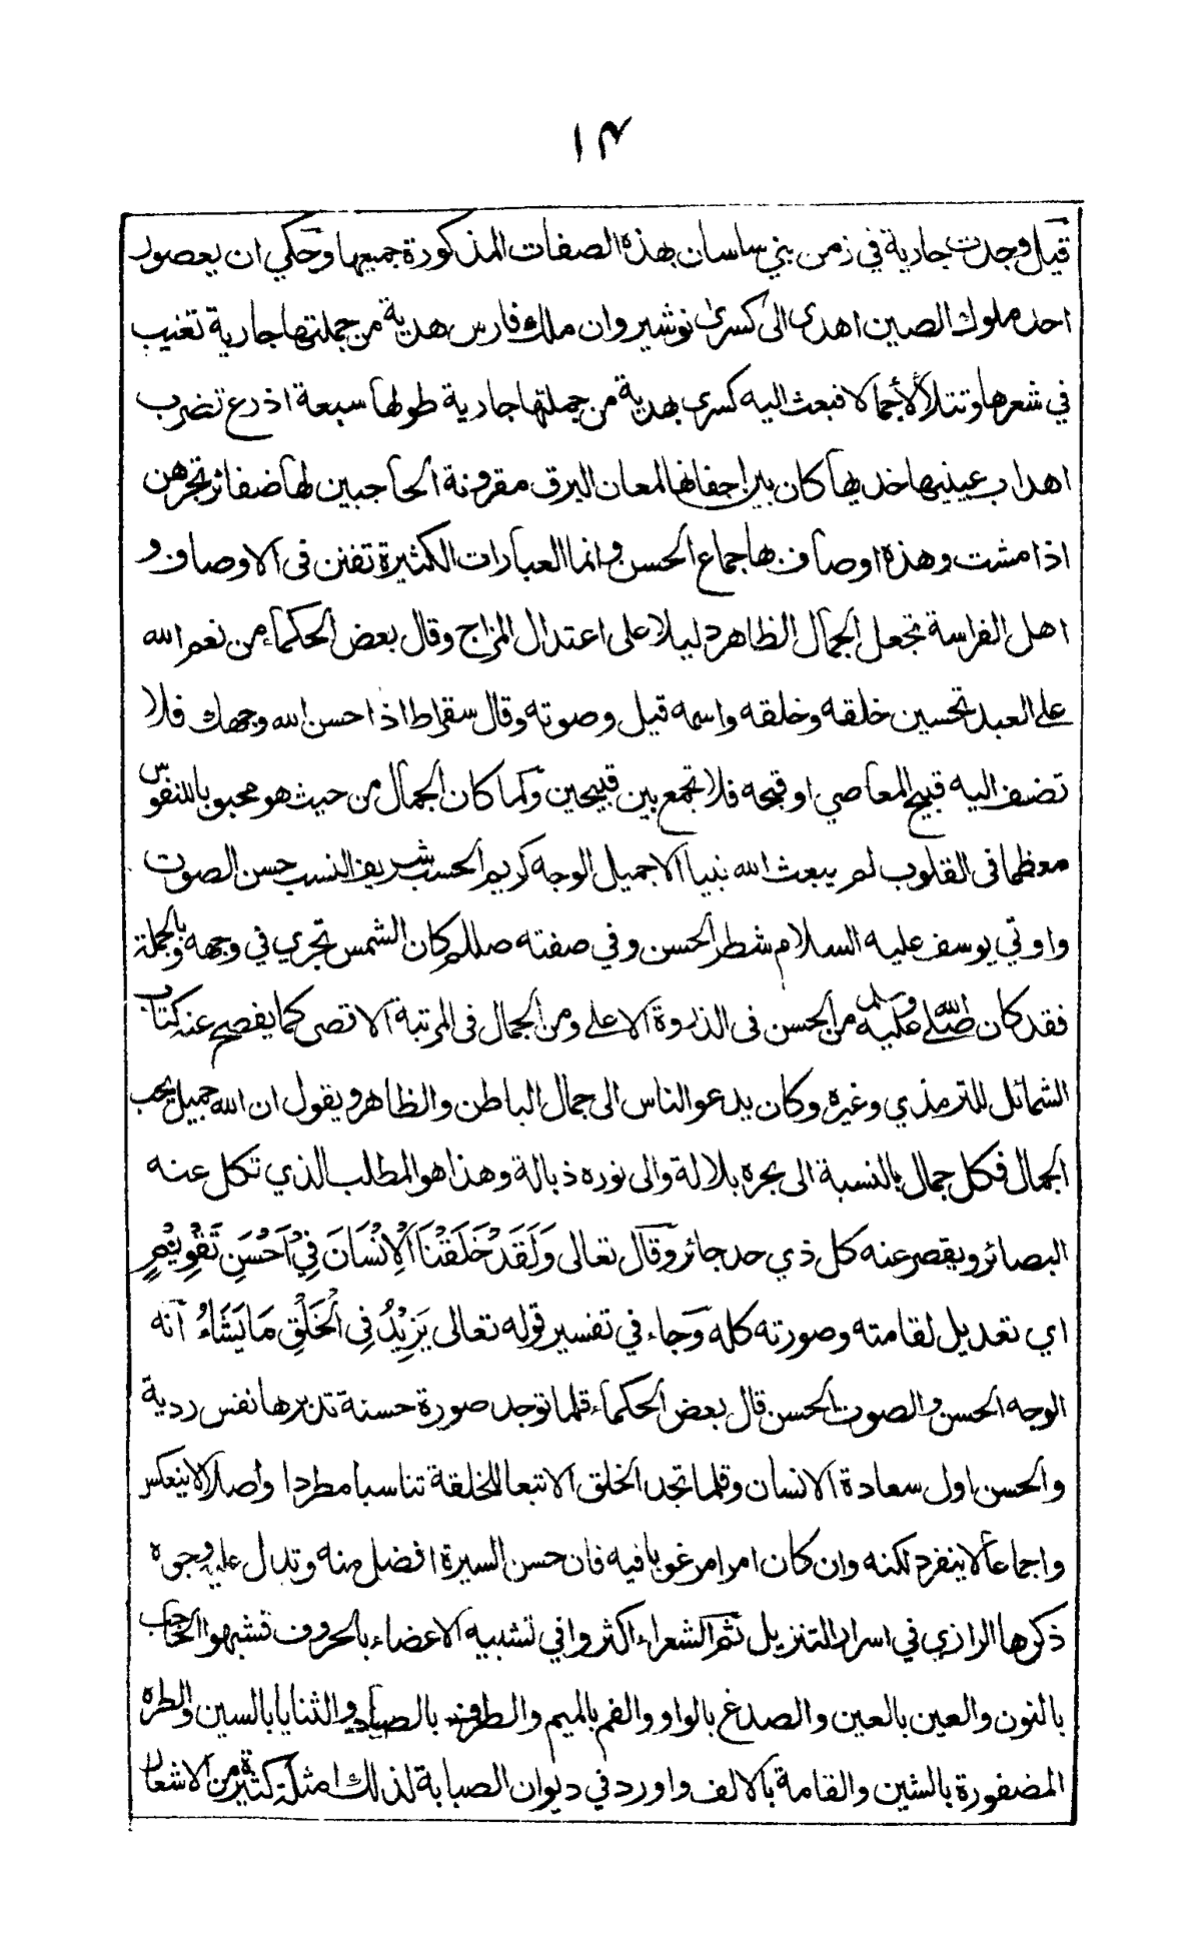 ١٤
قيل وجدت جارية في زمن بني ساسان بهذه الصفات المذكورة جميعها وحكي ان يعصور
احد ملوك الصين اهدى الى كسرى نوشيروان ملك فارس هدية من جملتها جارية تغيب
في شعرها وتتلألأ جمالا فبعث اليه كسرى بهدية من جملتها جارية طولها سبعة اذرع تضرب
اهداب عينيها خديها كان بين اجفانها لمعان البرق مقرونة الحاجبين لها ضفائر تجرهن
اذا مشت وهذه اوصاف بها جماع الحسن وانما العبارات الكثيرة تفنن فى الاوصاف و
اهل الفراسة تجعل الجمال الظاهر دليلا على اعتدال المزاج وقال بعض الحكماء من نعم الله
على العبد تحسين خلقه وخلقه واسمه قيل وصوته وقال سقراط اذا حسن الله وجهك فلا
تضف اليه قبيح المعاصي او قبحه فلا تجمع بين قبيحين وكما كان الجمال من حيث هو محبوبا للنفوس
معظما فى القلوب لم يبعث الله نبيا الا جميل الوجه كريم الحسب شريف النسب حسن الصوت
واوتي يوسف عليه السلام شطر الحسن وفي صفته صللم كان الشمس تجري في وجهه وبالجملة
فقد كان صلى الله عليه وسلم من الحسن فى الذروة الاعلى ومن الجمال فى المرتبة الاقصى كما يفصح عنه كتاب
الشمائل للترمذي وغيره وكان يدعو الناس الى جمال الباطن والظاهر ويقول ان الله جميل يحب
الجمال فكل جمال بالنسبة الى بحره بلالة والى نوره ذبالة وهذا هو المطلب الذي تكل عنه
البصائر ويقصر عنه كل ذي حد جائر وقال تعالى وَلَقَدْ خَلَقْنَا الْاِنْسَانَ فِيْ اَحْسَنِ تَقْوِيْمٍ
اي تعديل لقامته وصورته كله وجاء في تفسير قوله تعالى يَزِيْدُ فِى الْخَلْقِ مَا يَشَاءُ انه
الوجه الحسن والصوت الحسن قال بعض الحكماء قلما توجد صورة حسنة تدبرها نفس ردية
والحسن اول سعادة الانسان وقلما تجد الخلق الا تبعا للخلقة تناسبا مطردا واصلا لا ينعكس
واجماعا لا ينفرد لكنه وان كان امرا مرغوبا فيه فان حسن السيرة افضل منه وتدل عليه وجوه
ذكرها الرازي في اسرار التنزيل ثم الشعراء اكثروا في تشبيه الاعضاء بالحروف فشبهوا الحاجب
بالنون والعين بالعين والصدغ بالواو والفم بالميم والطرف بالصاد والثنايا بالسين والطره
المضفورة بالشين والقامة بالالف واورد في ديوان الصبابة لذلك امثلة كثيرة من الاشعار